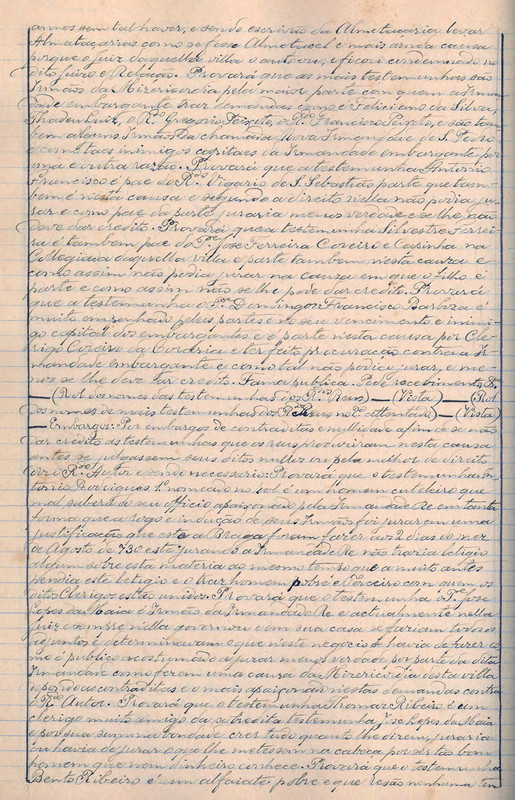 annos sem tal haver, e sendo escrivão da Almotaçaria levar
Almataçarias como se fosse Almotacel e mais ainda causa
porque o juiz daquella villa o autuou, e ficou condemnado no
dito juizo e Relação. Provará que as mais testemunhas são
Irmãos da Mizericordia pela maior parte com quem a Irman
dade embargante traz demandas como é Feliciano da Silva,
Thadeu Luiz, o Rdo Gregorio Peixoto, o Rdo Francisco Peixoto, e são tam
bem alguns Irmãos da chamada Nova Irmandade de S. Pedro
e como taes inimigos capitaes da Irmandade embargante por
uma e outra razão. Provará que a testemunha Antonio
Francisco é pae do Rdo Vigario de S. Sebastião parte que tam-
bem é nesta causa e segundo a direito nella não podia ju-
rar e como pae da parte juraria menos verdade e se lhe não
deve dar credito. Provará que a testemunha Silvestre Ferrei-
ra é tambem pae do Pe José Ferreira Coreiro e Casinha na
Collegiada daquella villa e parte tambem nesta causa e
como assim não podia jurar na causa em que o filho é
parte e como assim não se lhe pode dar credito. Provará
que a testemunha o Pe Domingos Francisco Barboza é
muito empenhado pelas partes e no seu vencimento e inimi-
go capital dos embargantes e é parte nesta causa por Cle-
rigo Coreiro da Confraria e ter feito procuração contra a Ir-
mandade Embargante e como tal não podia jurar, e me-
nos se lhe deve dar credito. Fama publica. Pede recebimento &
— (Rol dos nomes das testemunhas dos Rdos Reus) — (Vista) — (Rol
dos nomes de mais testemunhas dos Rdos Reus no 2º attentado) — (Vista)
— Embargos: Por embargos de contraditas e nullidade afim de se não
dar credito ás testemunhas que os reus produziram nesta causa
antes se julgassem seus ditos nullos ou pela melhor de direito
diz o Rdo Autor e sendo necessario: Provará que o testemunha An-
tonio Rodrigues 1º nomeado no rol é um homem cutileiro que
mal saberá do seu officio apaixonado pela Irmandade Re em tanta
forma que a rogo e indução de seus Irmãos foi jurar em uma
justificação que esta a Braga foram fazer aos 2 dias do mez
de Agosto de 730 e esta jurando a Irmandade Re não trazia letigio
algum sobre esta materia ao mesmo tempo que a muito antes
pendia este letigio e o traz homem pobre e Terceiro com quem os
ditos Clerigos estão unidos. Provará que o testemunha Pe José
Lopes da Maia é Irmão da Irmandade Re e actualmente nella
Juiz e sempre n'ella governou e em sua casa se faziam todos os
ajuntos e determinavam o que n'este negocio se havia de fazer co-
mo é publico acostumado a jurar menos verdade por parte da dita
Irmandade como foram uma causa da Mizericordia desta villa
e por isso as contraditas e o mais apaixonado nestas demandas contra
o Rdo Autor. Provará que o testemunha Thomaz Ribeiro é um
clerigo muito amigo da sobredita testemunha, José Lopes da Maia
e por sua summa bondade crer tudo quanto lhe direm, juraria
ou havia de jurar o que lhe metessem na cabeça por ser tão bom
homem que nem dinheiro conhece. Provará que o testemunha
Bento Ribeiro é um alfaiate pobre e que resão nenhuma tem